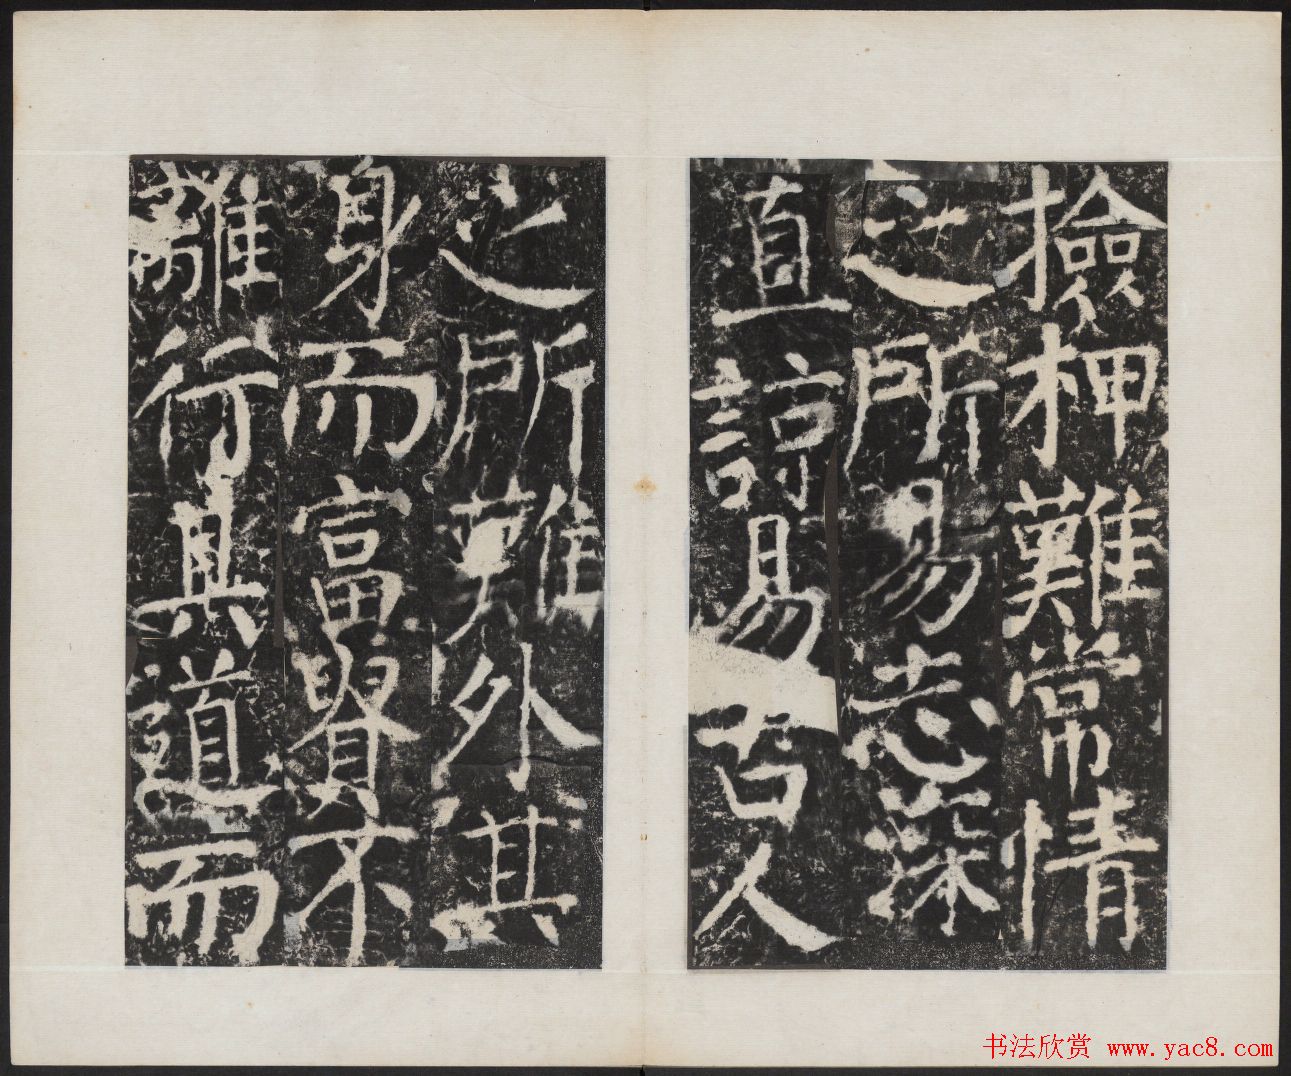 撿柙難常情
之所易志深
直諒易古人
之所難外其
身而富賢不
離行其道而
书法欣赏 www.yac8.com